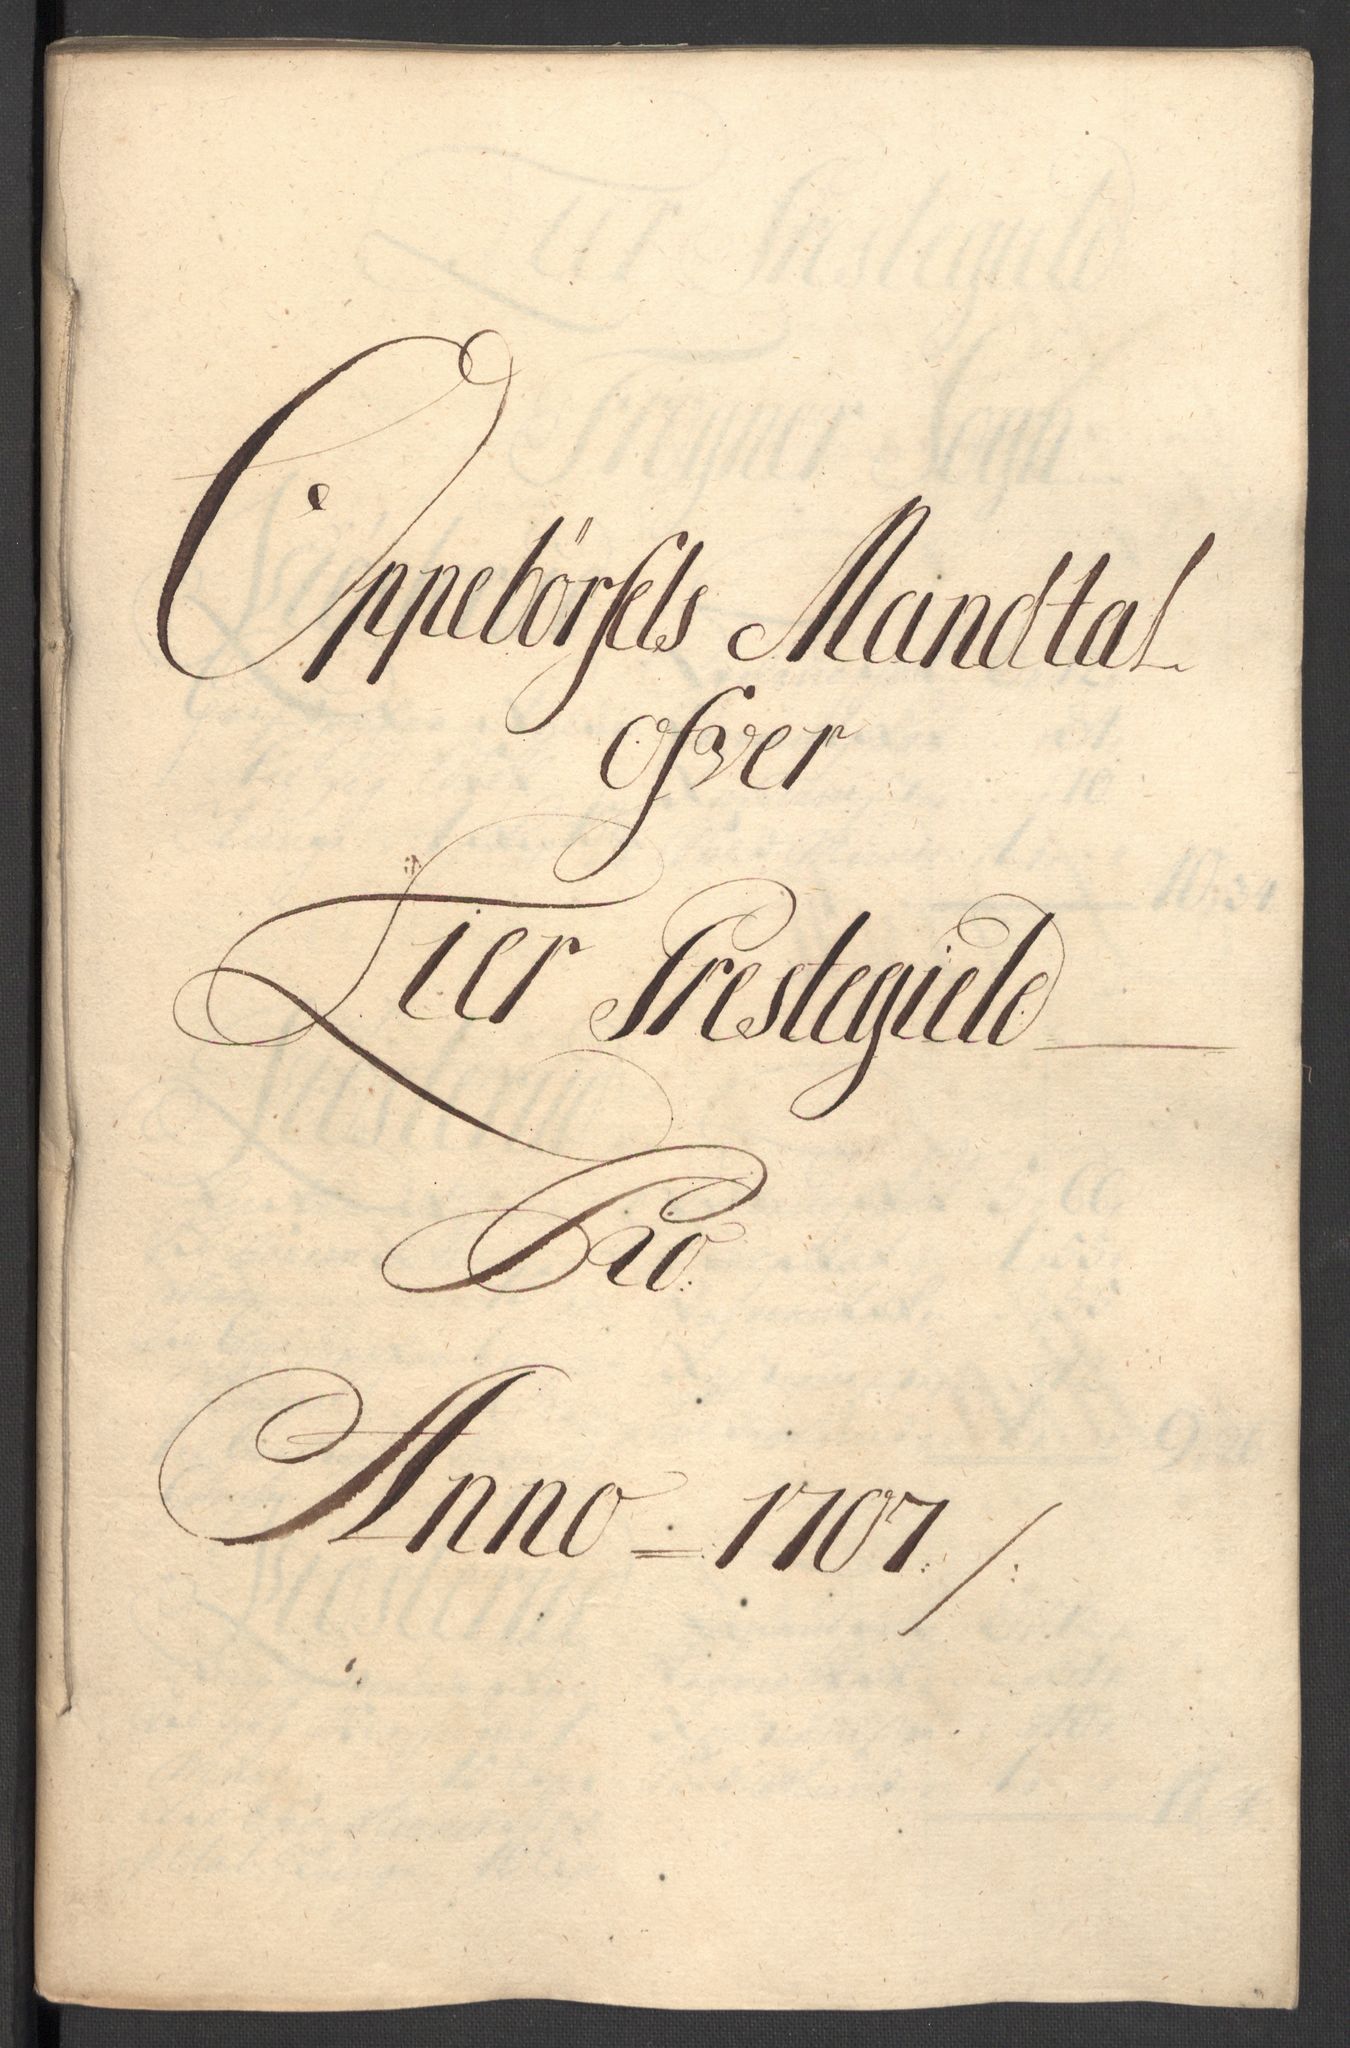 Oppebörsels Mandtal
ofver
Lier Prestegield
Pro.
Anno = 1707. /: